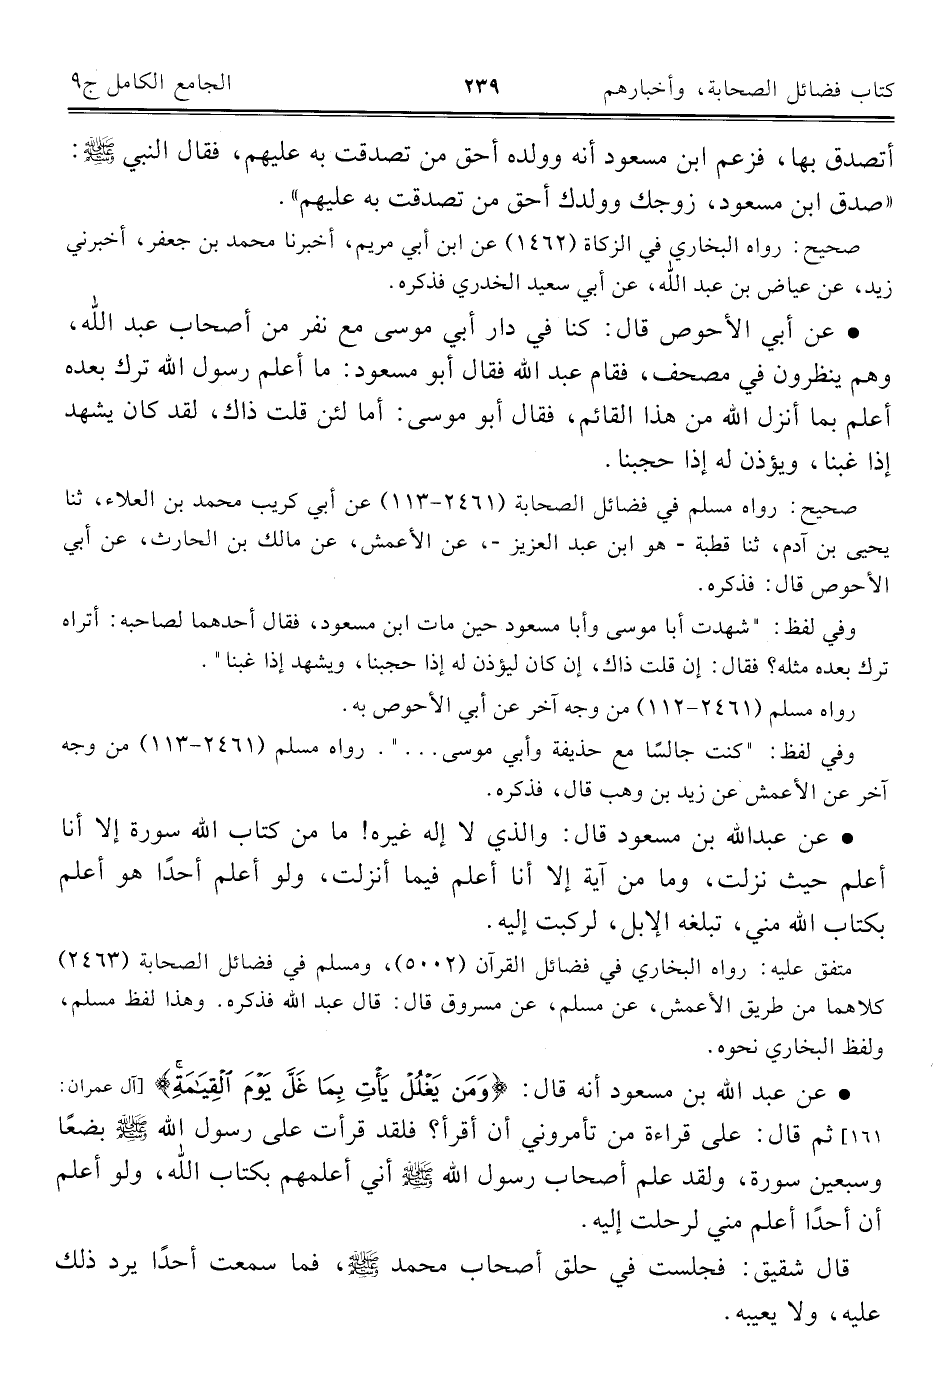 كتاب فضائل الصحابة، وأخبارهم ٢٣٩ الجامع الكامل ج٩
أتصدق بها، فزعم ابن مسعود أنه وولده أحق من تصدقت به عليهم، فقال النبي ﷺ:
«صدق ابن مسعود، زوجك وولدك أحق من تصدقت به عليهم».
صحيح: رواه البخاري في الزكاة (١٤٦٢) عن ابن أبي مريم، أخبرنا محمد بن جعفر، أخبرني
زيد، عن عياض بن عبد الله، عن أبي سعيد الخدري فذكره.
• عن أبي الأحوص قال: كنا في دار أبي موسى مع نفر من أصحاب عبد الله،
وهم ينظرون في مصحف، فقام عبد الله فقال أبو مسعود: ما أعلم رسول الله ترك بعده
أعلم بما أنزل الله من هذا القائم، فقال أبو موسى: أما لئن قلت ذاك، لقد كان يشهد
إذا غبنا، ويؤذن له إذا حجبنا.
صحيح: رواه مسلم في فضائل الصحابة (٢٤٦١-١١٣) عن أبي كريب محمد بن العلاء، ثنا
يحيى بن آدم، ثنا قطبة - هو ابن عبد العزيز -، عن الأعمش، عن مالك بن الحارث، عن أبي
الأحوص قال: فذكره.
وفي لفظ: "شهدت أبا موسى وأبا مسعود حين مات ابن مسعود، فقال أحدهما لصاحبه: أتراه
ترك بعده مثله؟ فقال: إن قلت ذاك، إن كان ليؤذن له إذا حجبنا، ويشهد إذا غبنا".
رواه مسلم (٢٤٦١-١١٢) من وجه آخر عن أبي الأحوص به.
وفي لفظ: "كنت جالسًا مع حذيفة وأبي موسى...". رواه مسلم (٢٤٦١-١١٣) من وجه
آخر عن الأعمش عن زيد بن وهب قال، فذكره.
• عن عبدالله بن مسعود قال: والذي لا إله غيره! ما من كتاب الله سورة إلا أنا
أعلم حيث نزلت، وما من آية إلا أنا أعلم فيما أنزلت، ولو أعلم أحدًا هو أعلم
بكتاب الله مني، تبلغه الإبل، لركبت إليه.
متفق عليه: رواه البخاري في فضائل القرآن (٥٠٠٢)، ومسلم في فضائل الصحابة (٢٤٦٣)
كلاهما من طريق الأعمش، عن مسلم، عن مسروق قال: قال عبد الله فذكره. وهذا لفظ مسلم،
ولفظ البخاري نحوه.
• عن عبد الله بن مسعود أنه قال: ﴿وَمَن يَغْلُلْ يَأْتِ بِمَا غَلَّ يَوْمَ ٱلْقِيَٰمَةِۚ﴾ [آل عمران:
١٦١] ثم قال: على قراءة من تأمروني أن أقرأ؟ فلقد قرأت على رسول الله ﷺ بضعًا
وسبعين سورة، ولقد علم أصحاب رسول الله ﷺ أني أعلمهم بكتاب الله، ولو أعلم
أن أحدًا أعلم مني لرحلت إليه.
قال شقيق: فجلست في حلق أصحاب محمد ﷺ، فما سمعت أحدًا يرد ذلك
عليه، ولا يعيبه.